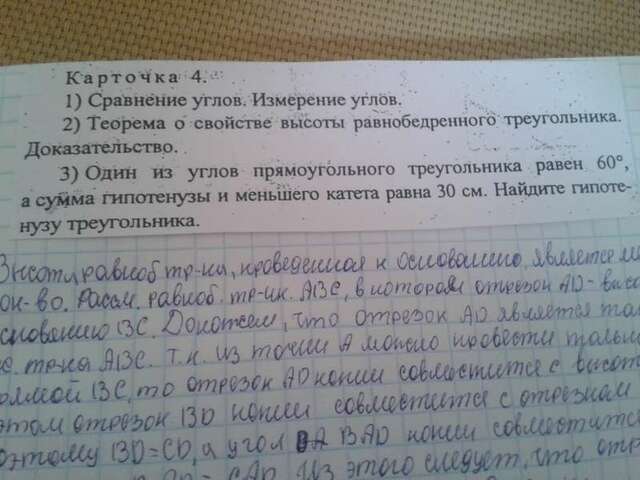 Карточка 4.
1) Сравнение углов. Измерение углов.
2) Теорема о свойстве высоты равнобедренного треугольника.
Доказательство.
3) Один из углов прямоугольного треугольника равен 60°,
а сумма гипотенузы и меньшего катета равна 30 см. Найдите гипоте-
нузу треугольника.
Высота равноб тр-ка, проведенная к основанию, является
Рассм. равноб. тр-ик. ABC, в котором отрезок AD - выс
BC. Докажем, что отрезок AD является
тр-ка ABC. т.к. из точки A можно провести только
прямой BC, то отрезок AD копии совместится с высот
этом отрезок BD копии совместится с отрезком
поэтому BD=CD, а угол BAD копии совместится
Из этого следует, что отр